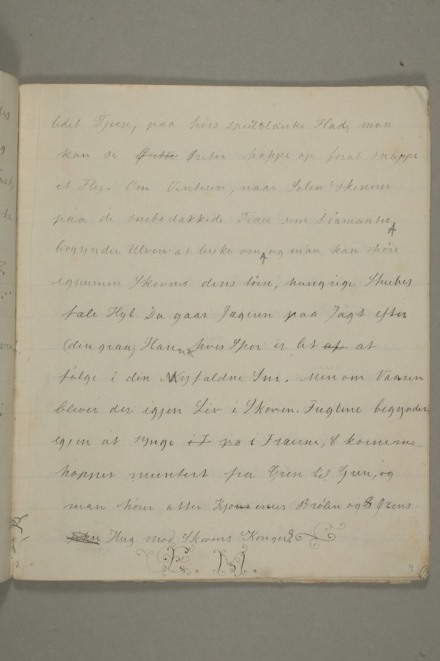 lidet Tjern, paa hvis speilblanke Flade man
kan se Ørette Ørreter hoppe op forat snappe
et Flue. Om Vinteren, naar Solen skinner
paa de snebedækkede Træer som Diamanter,
begynder Ulven at luske om, og man kan høre
igjennem Skovens dens hungrige Strubes
fæle Hyl. Da gaar Jægeren paa Jagt efter
(den graa) Haren, hvis Spor er let af at
følge i den Nysfaldne Sne. Men om Vaaren
bliver der igjen Liv i Skoven. Fuglene begynder
igjen at synge i T paa i Træerne, Ekornerne
hopper muntert fra Gren til Gren, og
man hører atter Brølen og Øxens
Hug mod Skovens Konger.
E. M.